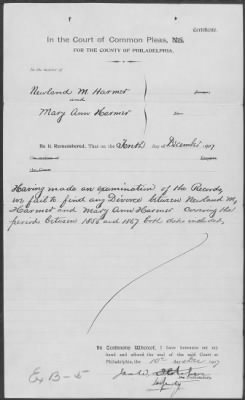 Certificate.
In the Court of Common Pleas, No. 5.
FOR THE COUNTY OF PHILADELPHIA.
In the matter of
Newland M Harmer
and
Mary Ann Harmer
Be it Remembered, That on the Tenth day of December 1907
Having made an examination of the Records
we fail to find any Divorce between Newland M,
Harmer and Mary Ann Harmer covering the
periods between 1856 and 1867 both dates inclusive,
In Testimony Whereof, I have hereunto set my
hand and affixed the seal of the said Court at
Philadelphia, the 10th day of Dec 1907
Deputy
Ex B-5